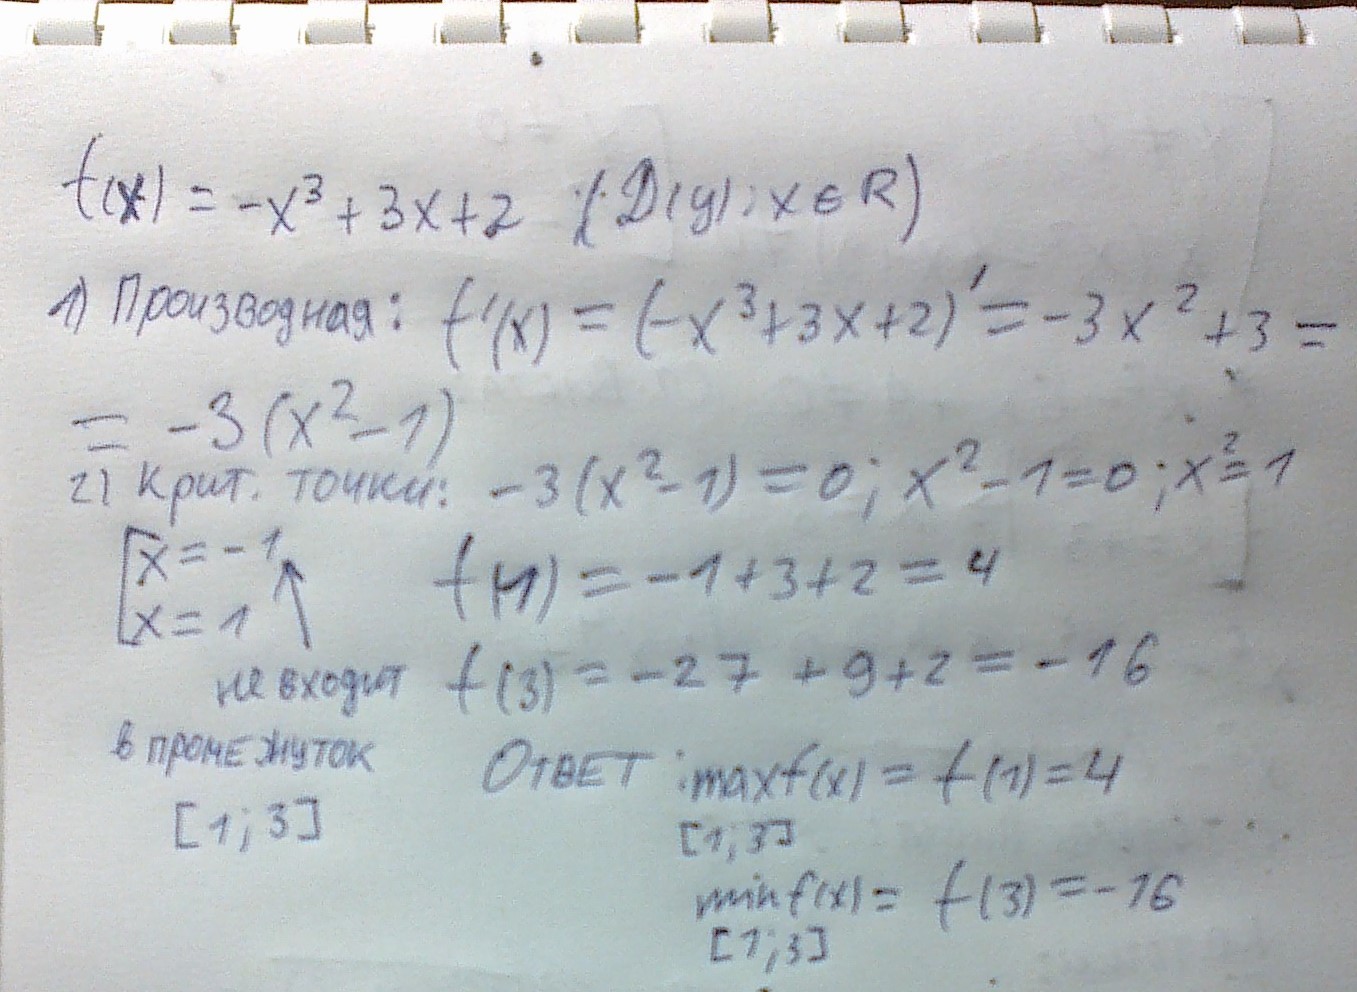 f(x) = -x³ + 3x + 2 (D(y): x ∈ R)
1) Производная: f'(x) = (-x³+3x+2)' = -3x² + 3 =
= -3(x² - 1)
2) Крит. точки: -3(x²-1) = 0; x² - 1 = 0; x² = 1
[x = -1
[x = 1
не входит
в промежуток
[1; 3]
f(1) = -1 + 3 + 2 = 4
f(3) = -27 + 9 + 2 = -16
Ответ: max f(x) = f(1) = 4
[1; 3]
min f(x) = f(3) = -16
[1; 3]